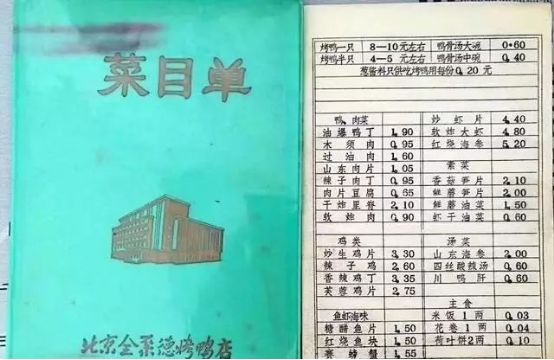 菜目单
北京全聚德烤鸭店
烤鸭一只 8—10元左右 鸭骨汤大碗 0.60
烤鸭半只 4—5元左右 鸭骨汤中碗 0.40
葱酱料只供吃烤鸭用每份0.20元
鸭、肉菜
油爆鸭丁 1.90
木须肉 0.95
过油肉 1.60
山东肉片 1.05
辣子肉丁 0.95
肉片豆腐 0.65
干炸里脊 2.10
软炸肉 0.90
鸡类
炒生鸡片 3.30
辣子鸡 2.60
香辣鸡丁 3.35
芙蓉鸡片 2.75
鱼虾海味
糖醋鱼片 1.50
红烧鱼块 1.50
赛螃蟹 1.55
炒虾片 4.40
软炸大虾 4.80
红烧海参 5.20
素菜
香菇笋片 2.10
鲜蘑笋片 2.00
鲜蘑油菜 1.50
虾干油菜 0.60
汤菜
山东海参 2.00
四丝酸辣汤 0.60
川鸭肝 0.60
主食
米饭1两 0.03
花卷1两 0.04
荷叶饼2两 0.10